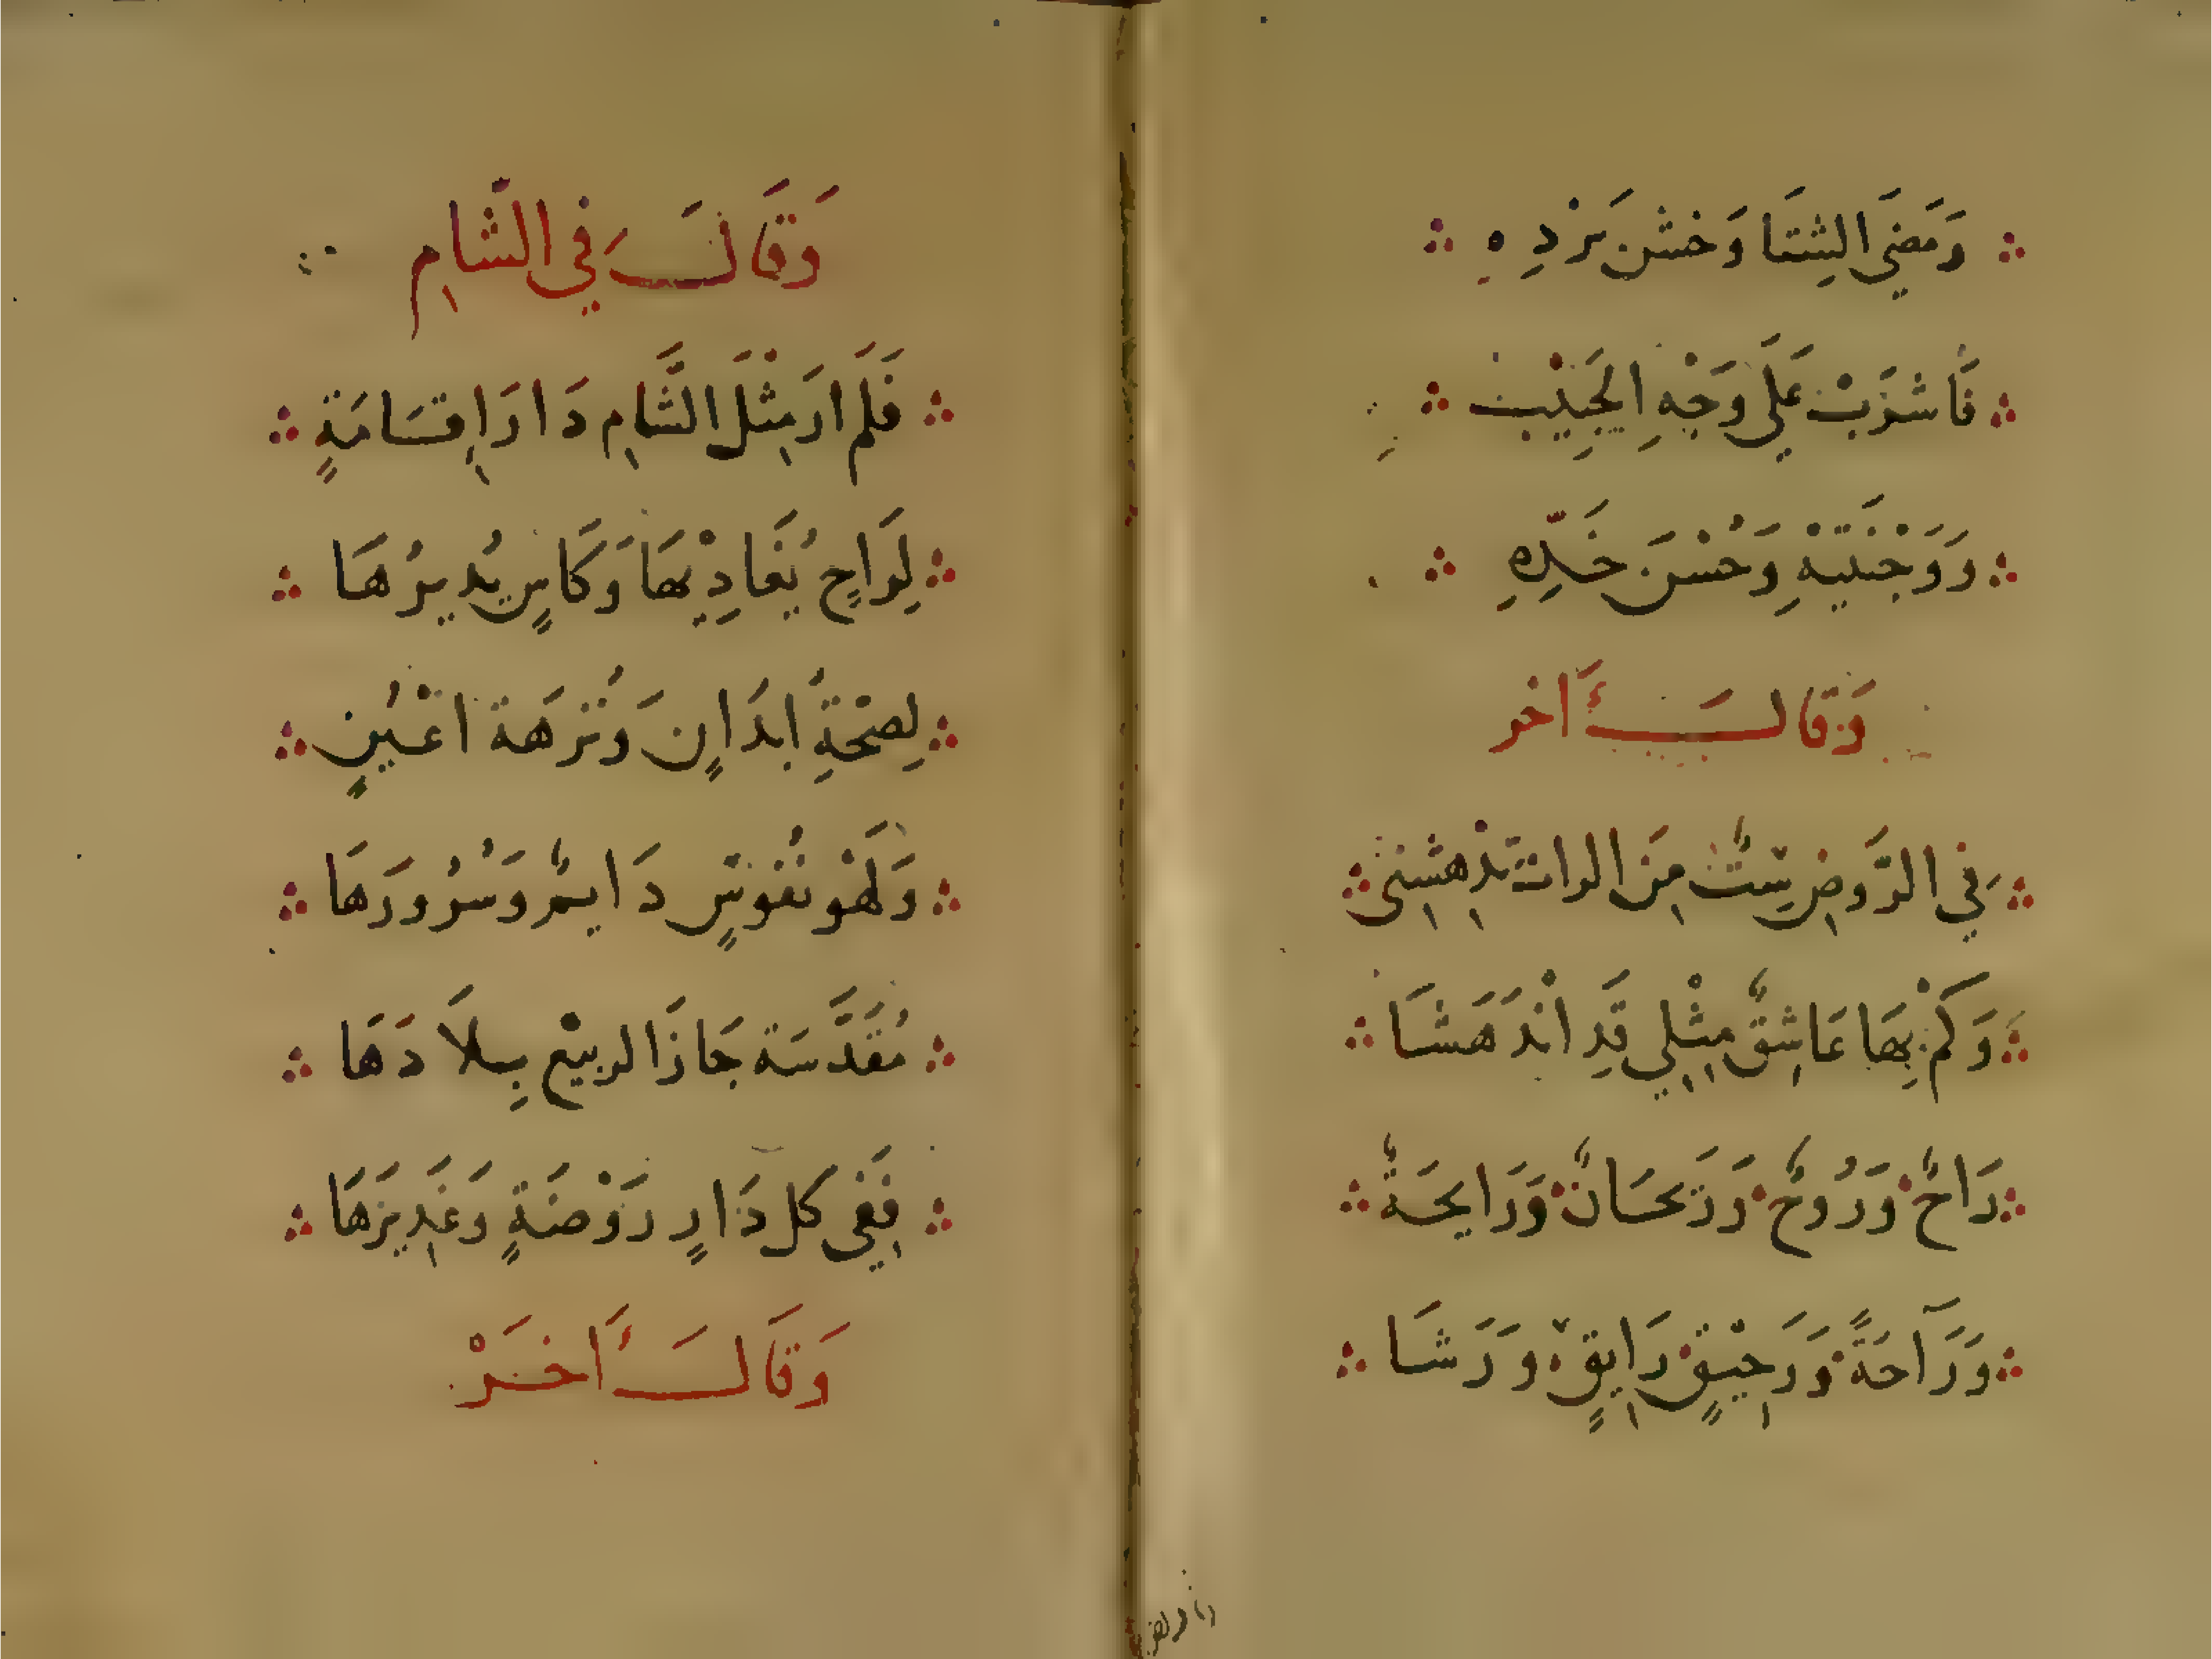 وَمَضَى الشِتَا وَخشن بَرْدِهِ
فَاشْرَبْ عَلَى وَجْهِ الحَبِيْب
وَوَجْنَتَيْهِ وَحُسْنَ خَدِّهِ
وَقَالَ ءَاخر
فِي الرَّوضِ سِتٌّ مِنَ الرات تدْهِشنِي
وَكَمْ بِهَا عَاشِقٌ مِثْلِي قَدِ انْدَهَشَا
رَاحٌ وَرُوحٌ وَرَيحَانٌ وَرَايحَةٌ
وَرَاحَةً وَرَحِيْقٍ رَايِقٍ وَرَشَا
وَقَالَ فِي الشَّامِ
فَلَمِ ارَ مِثْلَ الشَّامِ دَارَ اِقَامَةٍ
لِرَاحٍ يُغَادِيْهَا وَكَاسٍ يُدِيرُهَا
لِصِحَّةِ ابدَانٍ وَنُزهَة اعْيُنٍ
وَلَهْو نُفُوسٍ دَايمٌ وَسُرُورَهَا
مُقَدَّسَة جَازَ الربيْع بِلَادَهَا
فَفِي كل دَارٍ رَوْضَةٍ وَغَدِيرَهَا
وَقَالَ ءَاخَرْ